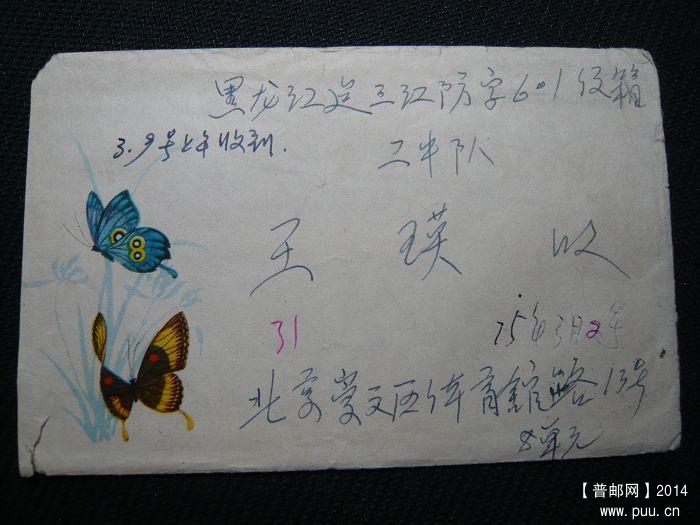 黑龙江逆三江防字601伩箱
3.9号上午收到.
二中队
王 瑛 收
31
75年3月2号
北京崇文区体育馆路13号
8单元
【普邮网】2014
www.puu.cn